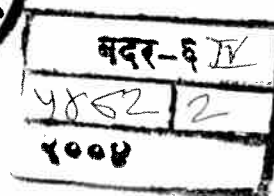 बदर-६ IV
५४८२ | २
२००४